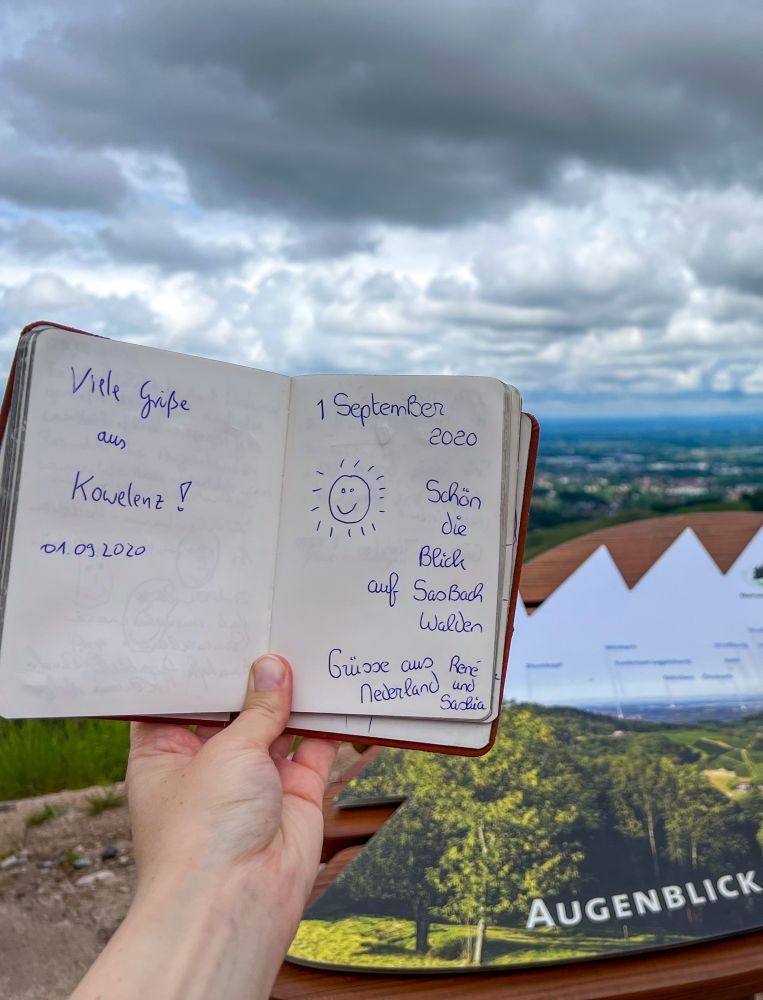 Viele Grüße
aus
Kowelenz!
01.09.2020
1 September
2020
Schön
die
Blick
auf Sasbach
Walden
Grüsse aus René
Nederland und
Saskia
AUGENBLICK